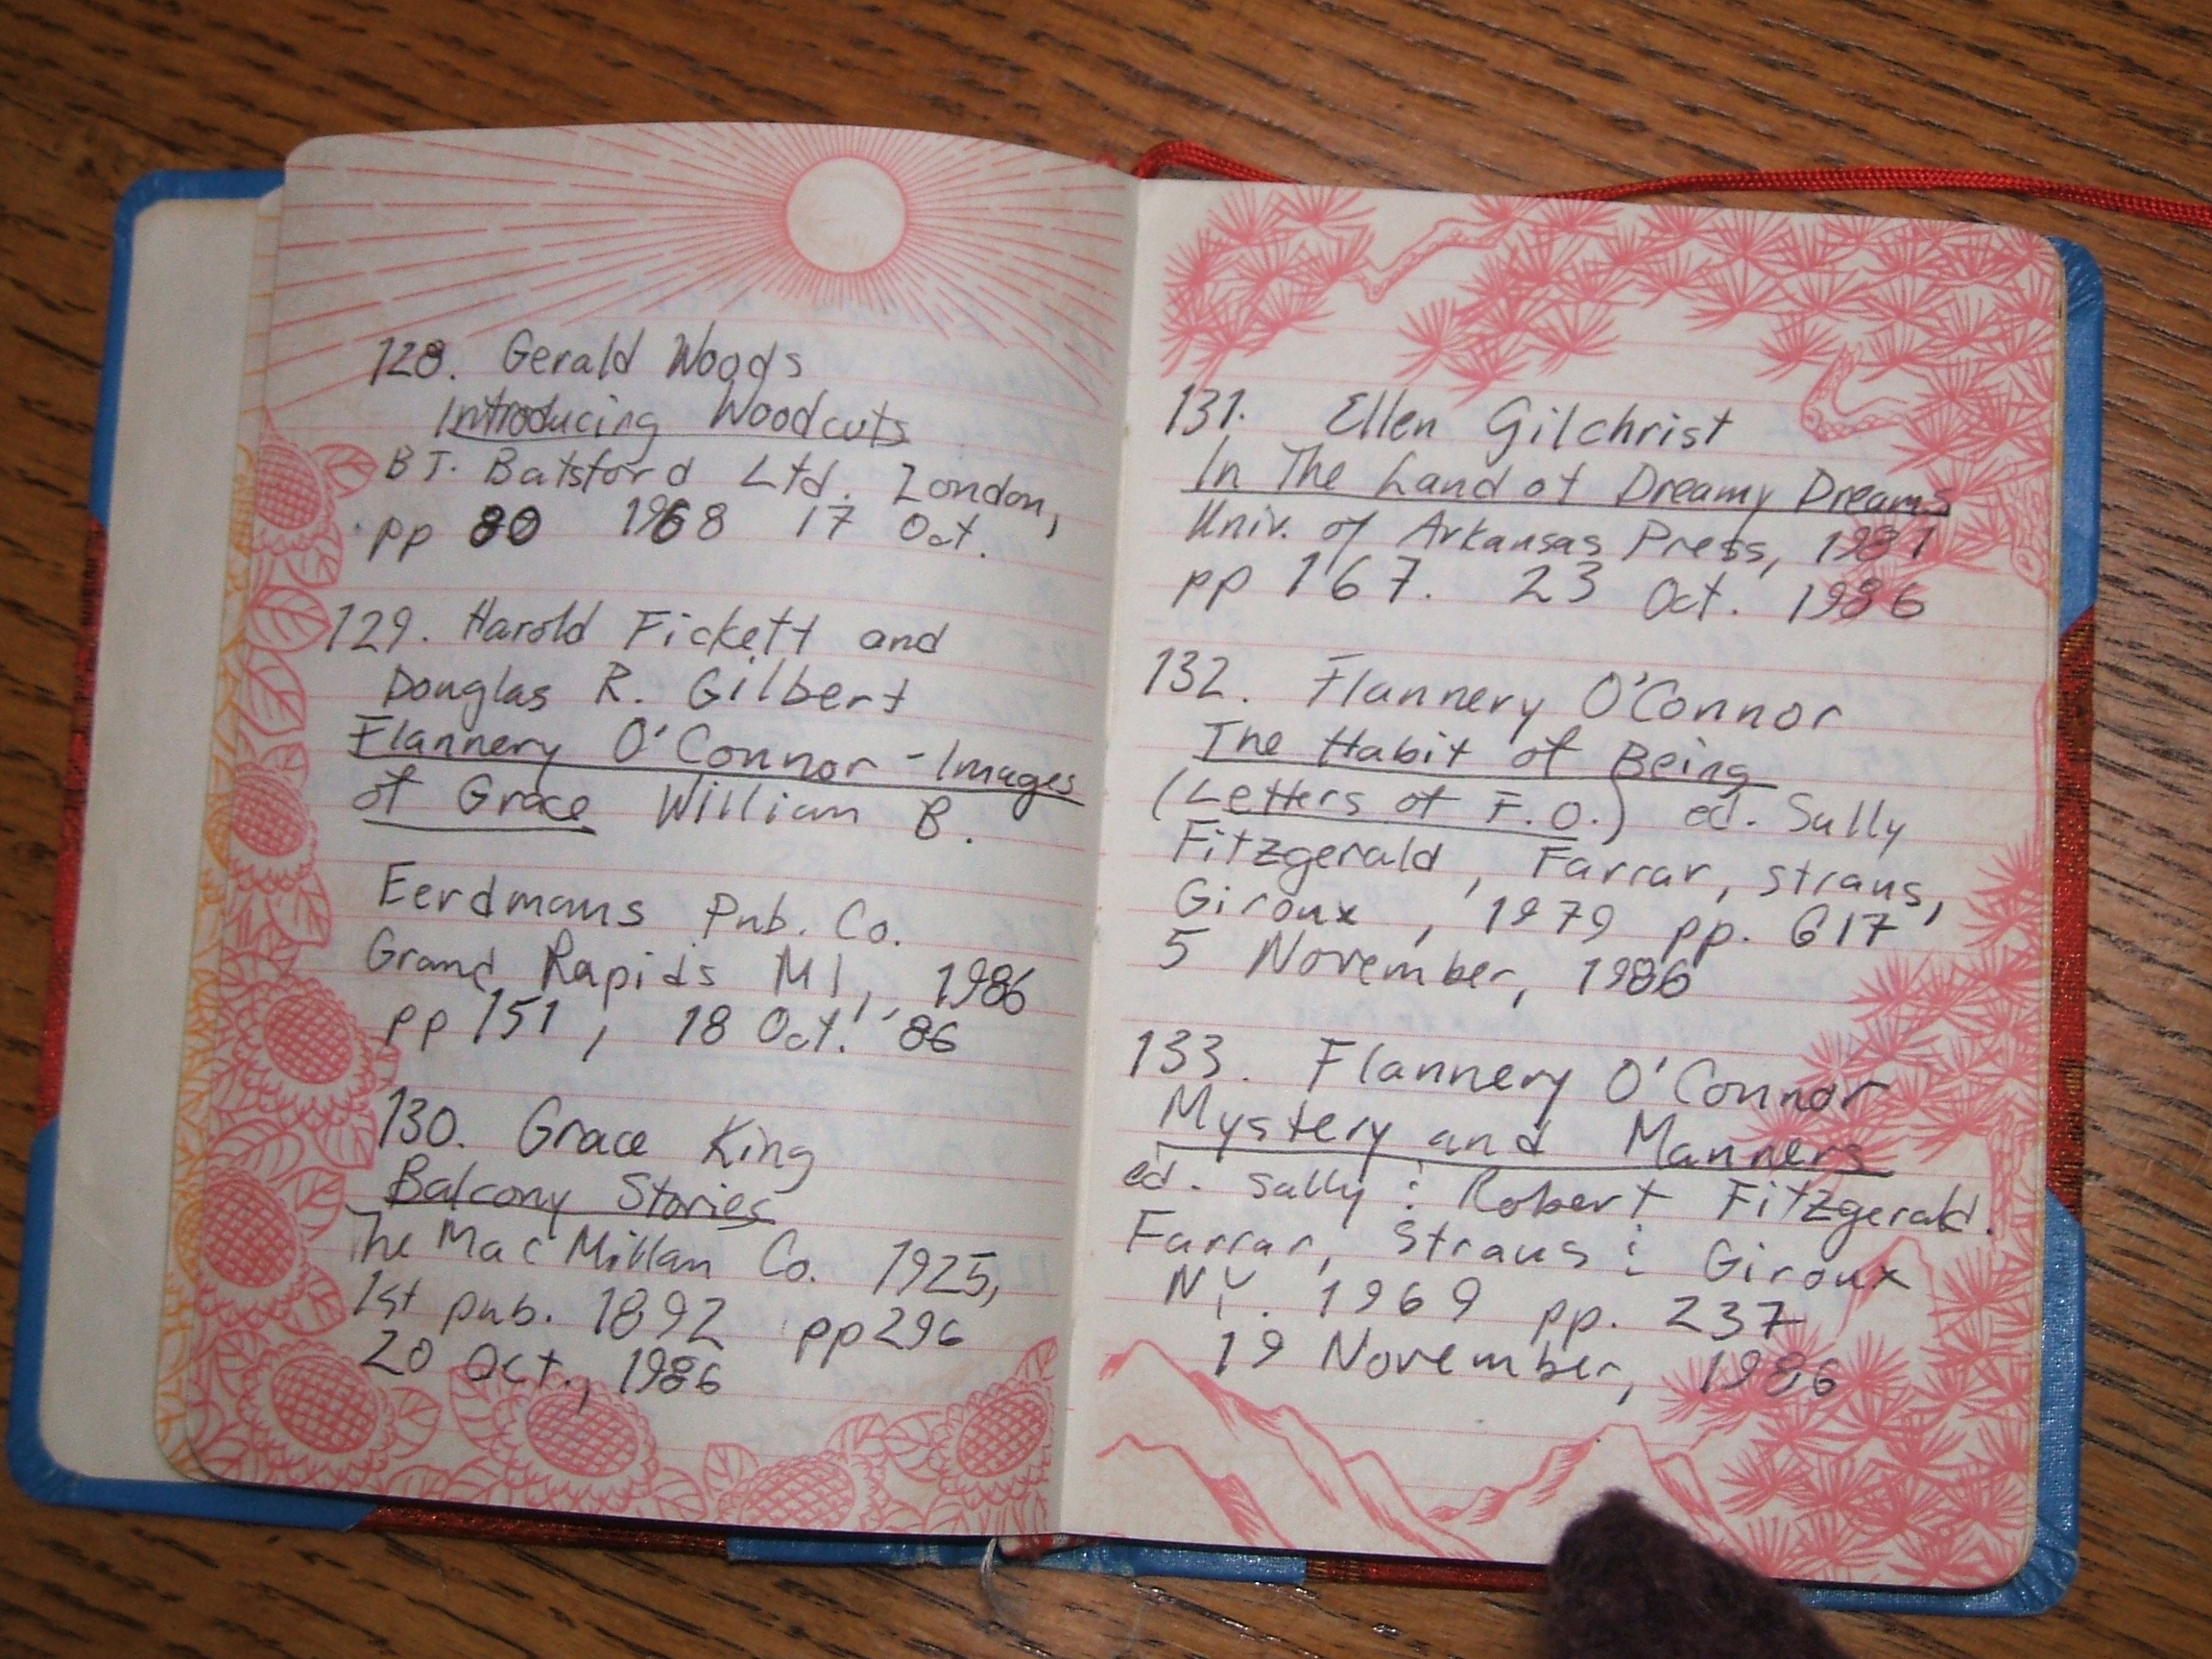 128. Gerald Woods
Introducing Woodcuts
BT. Batsford Ltd. London,
pp 80 1968 17 Oct.
129. Harold Fickett and
Douglas R. Gilbert
Flannery O'Connor - Images
of Grace William B.
Eerdmans Pub. Co.
Grand Rapids MI, 1986
pp 151, 18 Oct. '86
130. Grace King
Balcony Stories
The MacMillan Co. 1925,
1st pub. 1892 pp 296
20 Oct., 1986
131. Ellen Gilchrist
In The Land of Dreamy Dreams
Univ. of Arkansas Press, 1981
pp 167. 23 Oct. 1986
132. Flannery O'Connor
The Habit of Being
(Letters of F.O.) ed. Sally
Fitzgerald, Farrar, Straus,
Giroux, 1979 pp. 617
5 November, 1986
133. Flannery O'Connor
Mystery and Manners
ed. Sally & Robert Fitzgerald.
Farrar, Straus & Giroux
NY. 1969 pp. 237
19 November, 1986